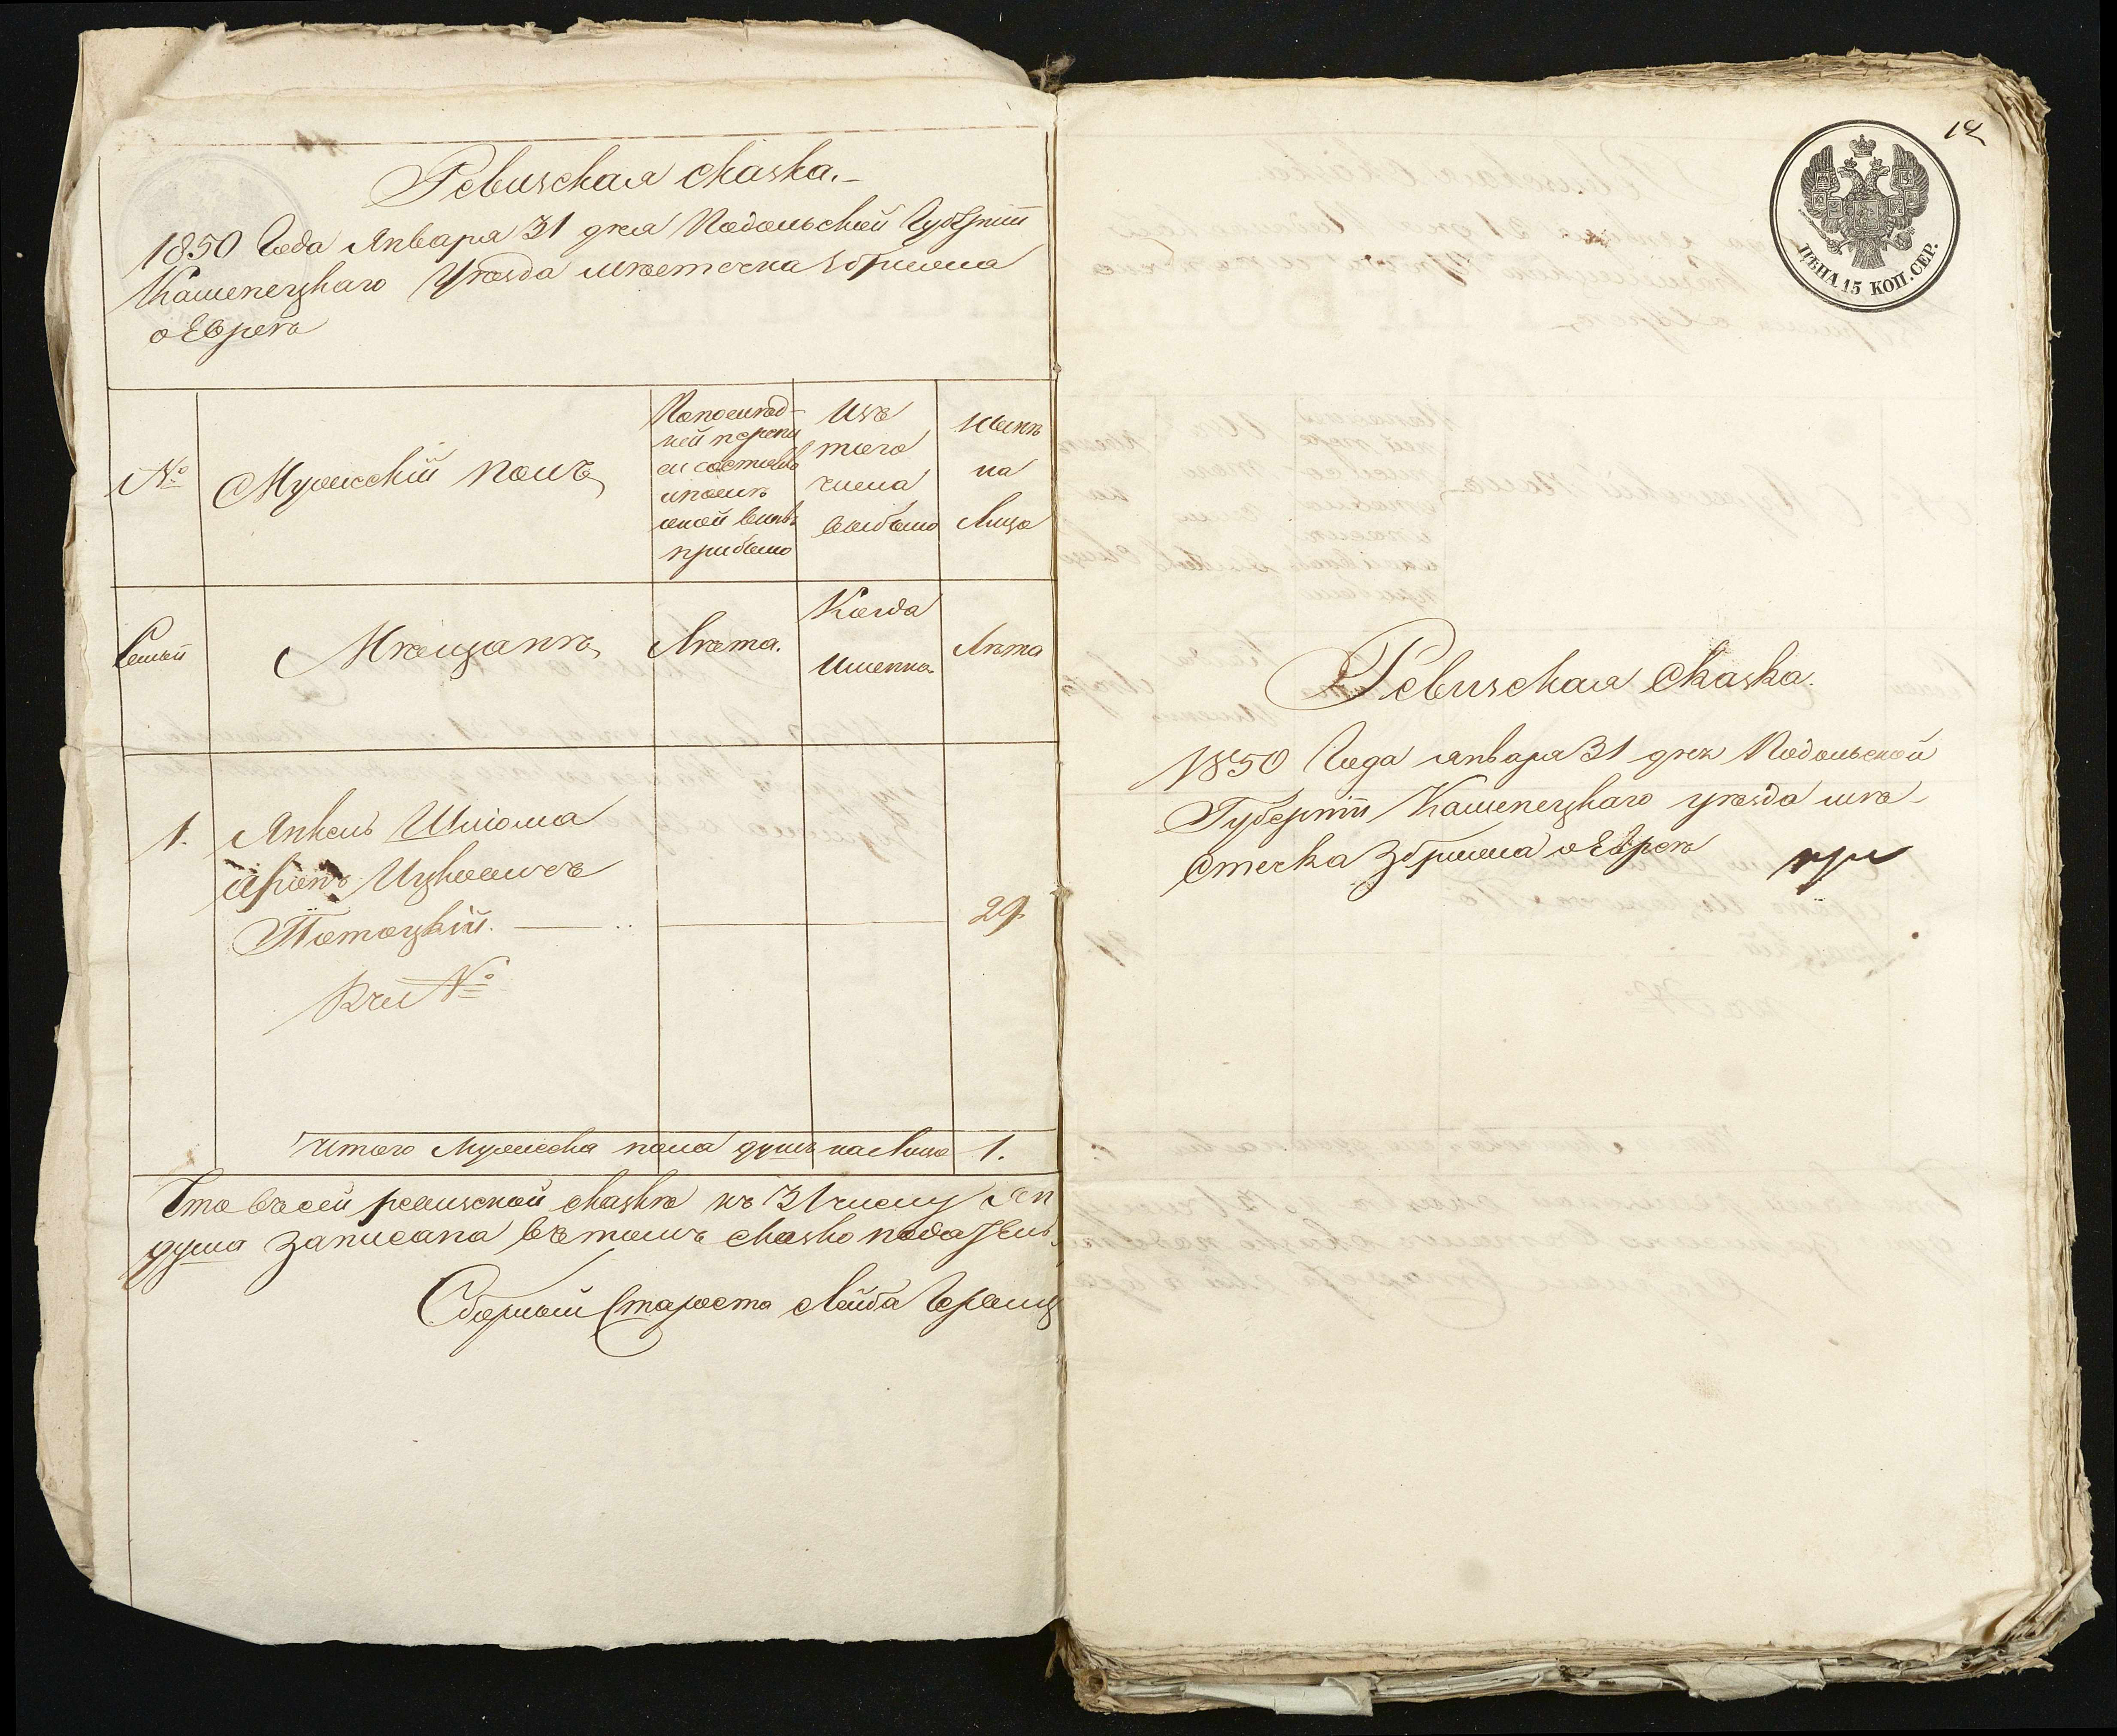 Ревизская сказка.
1850 Года Января 31 дня Подольской Губерніи
Каменецкаго Уѣзда мѣстечка Збрижа
о Евреѣ
№
Мужескій полъ
По последней переписи состояло и после оной вновь прибыло
Изъ того числа выбыло
Нынѣ на Лицо
Семьи
Мѣщанъ
Лѣта.
Когда Именно
Лѣта
1.
Анкель Шліома
Аронъ Ицковичъ
Потоцкій.
29
№
Итого Мужеска пола душъ на Лицо 1.
Что въ сей ревизской сказкѣ къ 31 числу Ян
душа записана въ томъ
Сборный Староста Лейба
12
ЦѢНА 15 КОП. СЕР.
Ревизская Сказка.
1850 Года января 31 дня Подольской
Губерніи Каменецкаго уѣзда мѣ-
стечка Збрижа о Евреѣ